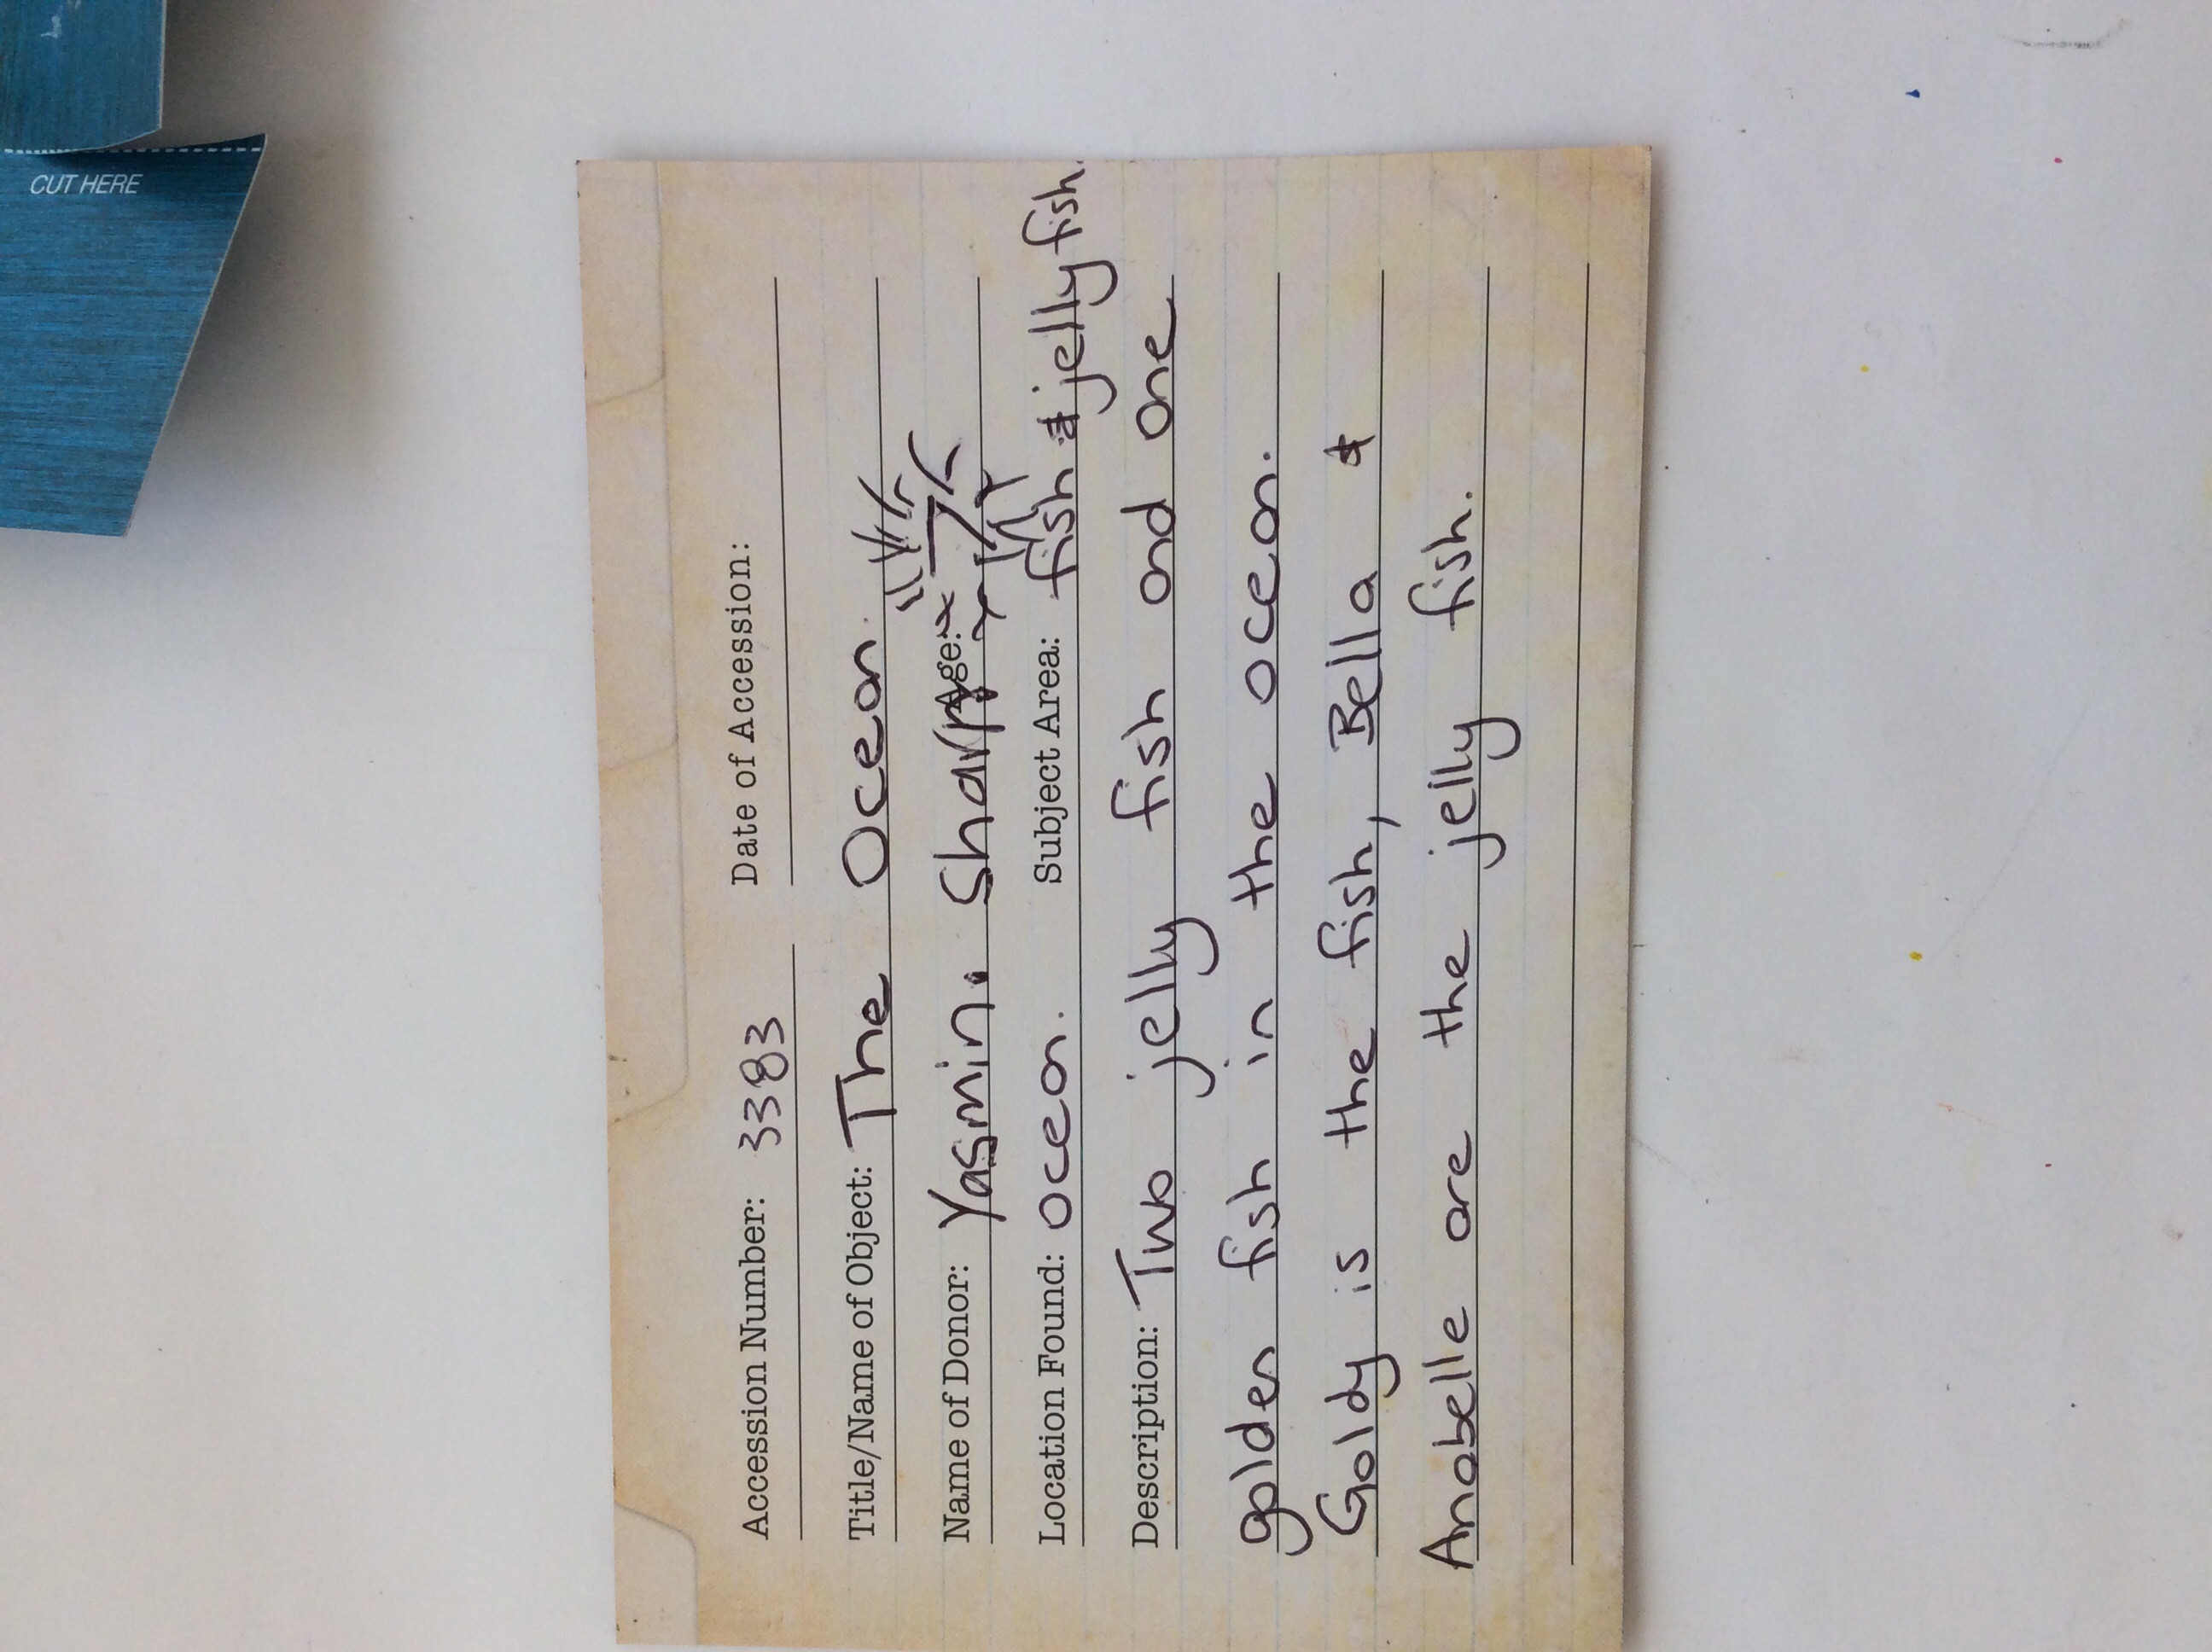 CUT HERE
Accession Number: 3383 Date of Accession:
Title/Name of Object: The Ocean.
Name of Donor: Yasmin. Sharp Age: 7
Location Found: ocean. Subject Area: fish & jelly fish.
Description: Two jelly fish and one
golden fish in the ocean.
Goldy is the fish, Bella &
Anabelle are the jelly fish.